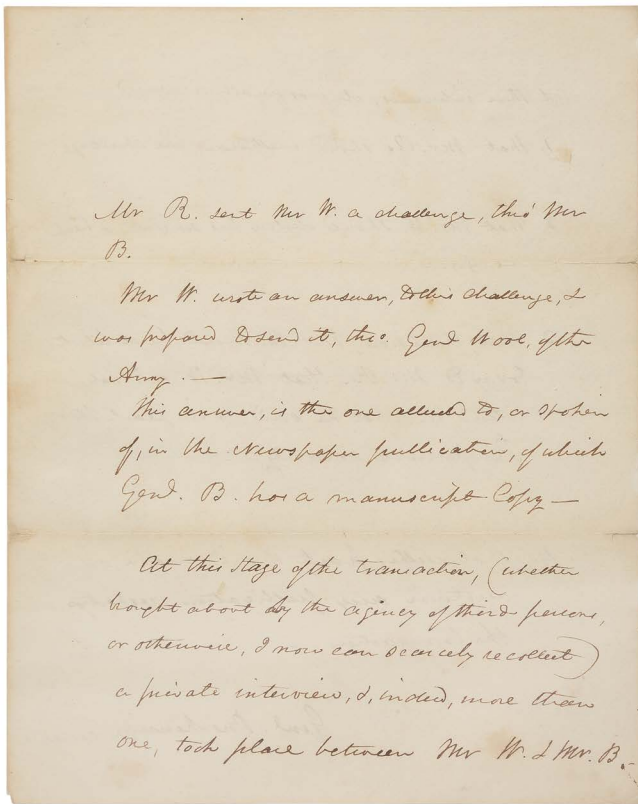 Mr R. sent Mr W. a challenge, thro' Mr
B.
Mr W. wrote an answer, to this challenge, &
was prepared to send it, thro. Genl Wool, of the
Army. —
This answer, is the one alluded to, or spoken
of, in the Newspaper publication, of which
Genl. B. has a manuscript Copy —
At this stage of the transaction, (whether
brought about by the agency of third persons,
or otherwise, I now can scarcely recollect)
a private interview, &, indeed, more than
one, took place between Mr W. & Mr. B.